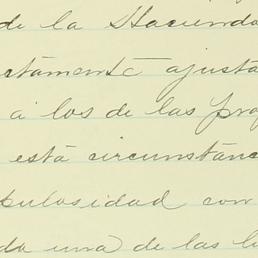 de la Hacienda
ctamente ajusta
a los de las prop
está circunstanc
pulosidad con
da una de las l